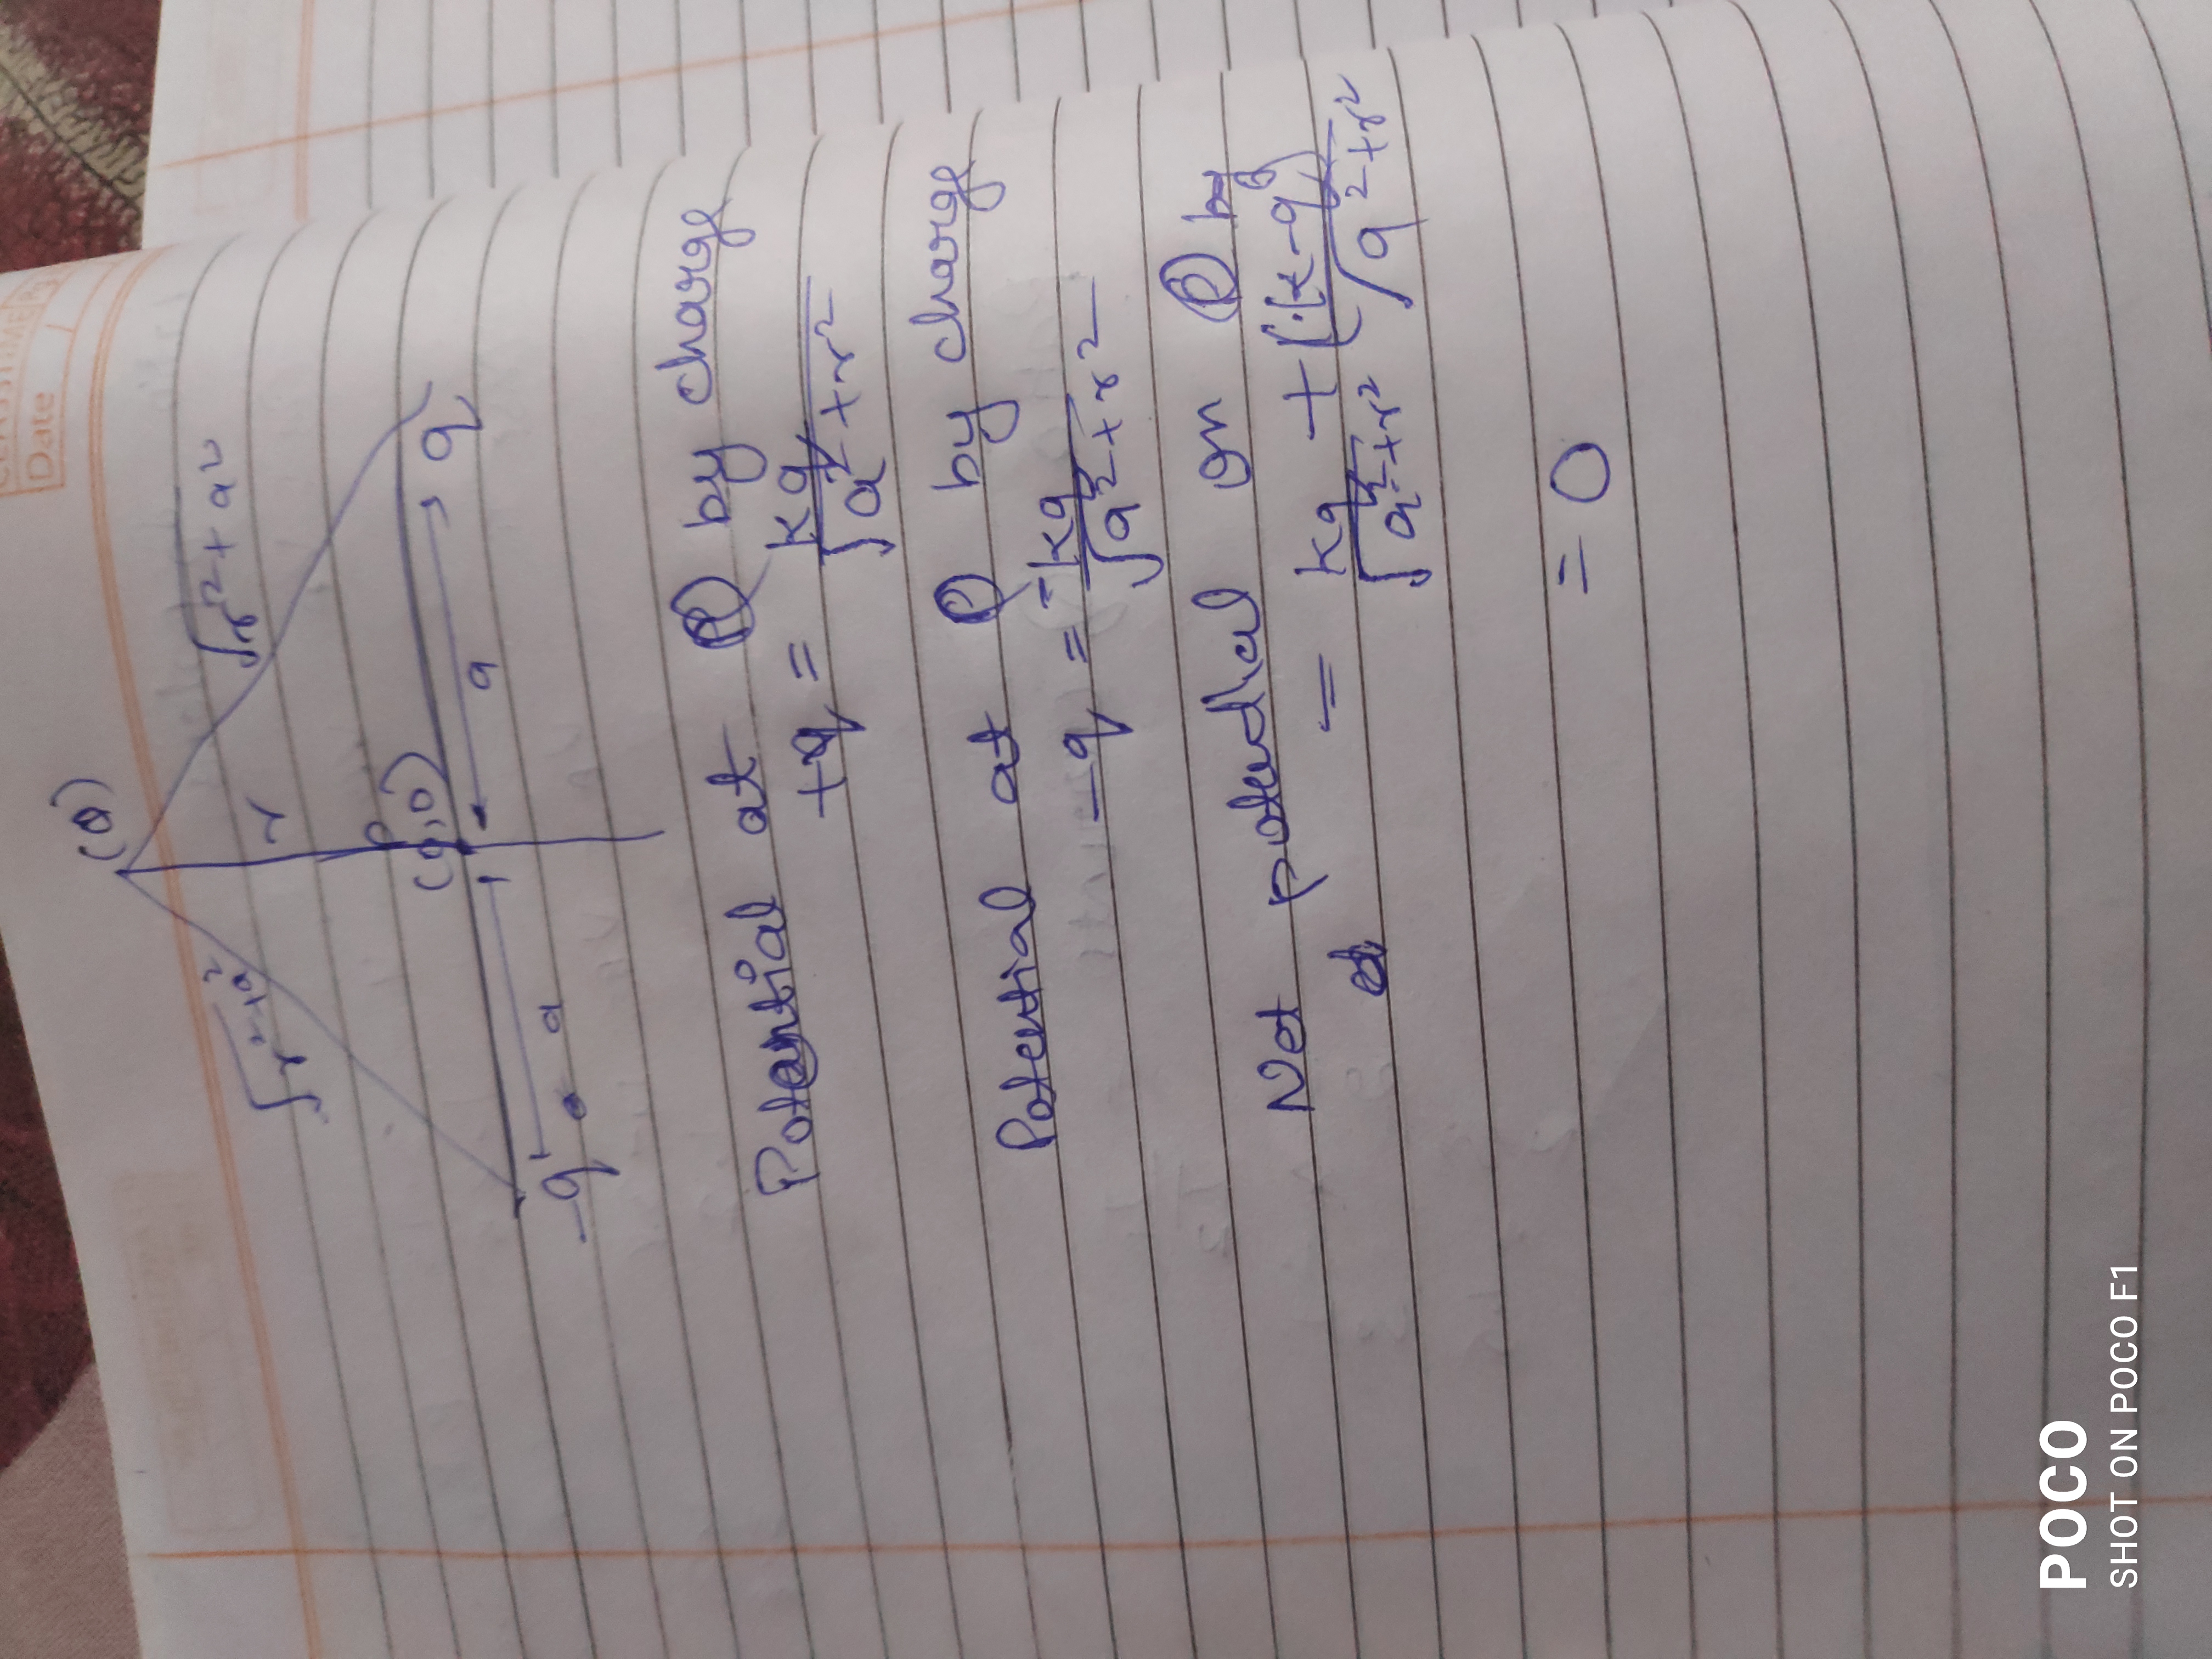 Date
(Q)
√r²+a²
√r²+a²
r
(0,0)
-q
a
a
q
Potential at P by charge
+q = kq/√a²+r²
Potential at P by charge
-q = -kq/√a²+r²
Net potential on P by
= kq/√a²+r² + (k-q)/√a²+r²
= 0
POCO
SHOT ON POCO F1